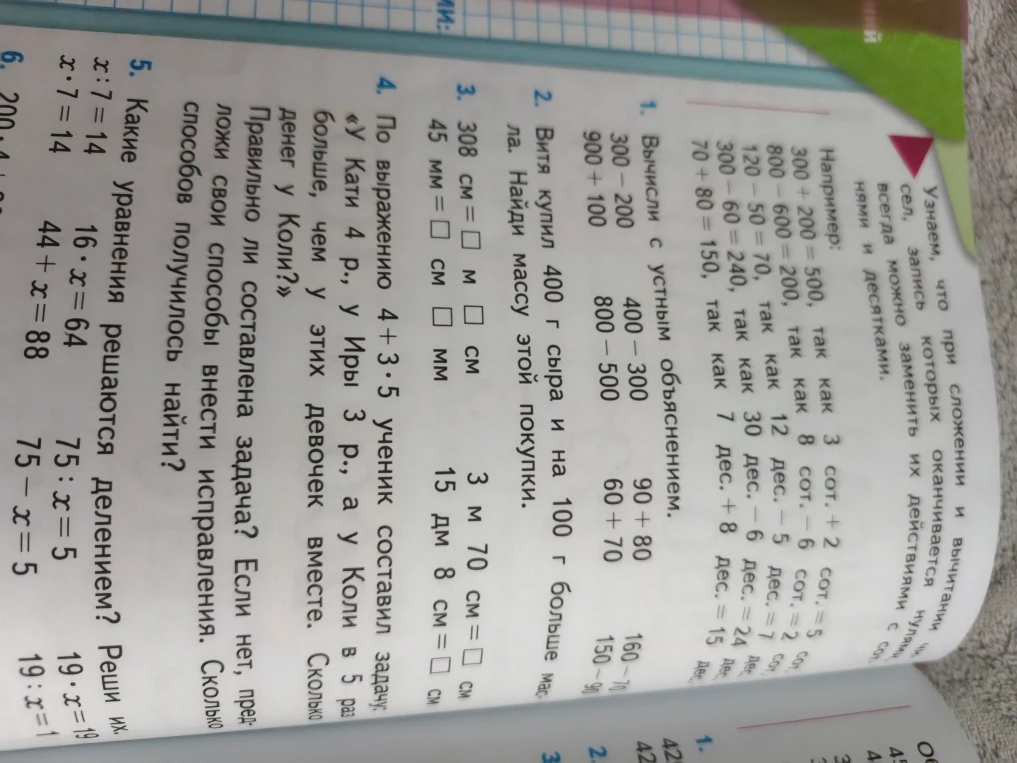 Узнаем, что при сложении и вычитании
сел, запись которых оканчивается нулями,
всегда можно заменить их действиями с сот
нями и десятками.
Например:
300 + 200 = 500, так как 3 сот. + 2 сот. = 5 сот
800 − 600 = 200, так как 8 сот. − 6 сот. = 2 сот
120 − 50 = 70, так как 12 дес. − 5 дес. = 7 дес
300 − 60 = 240, так как 30 дес. − 6 дес. = 24 дес
70 + 80 = 150, так как 7 дес. + 8 дес. = 15 дес.
1. Вычисли с устным объяснением.
300 − 200 400 − 300 90 + 80 160 − 70
900 + 100 800 − 500 60 + 70 150 − 90
2. Витя купил 400 г сыра и на 100 г больше мас-
ла. Найди массу этой покупки.
3. 308 см = □ м □ см 3 м 70 см = □ см
45 мм = □ см □ мм 15 дм 8 см = □ см
4. По выражению 4 + 3 · 5 ученик составил задачу:
«У Кати 4 р., у Иры 3 р., а у Коли в 5 раз
больше, чем у этих девочек вместе. Сколько
денег у Коли?»
Правильно ли составлена задача? Если нет, пред-
ложи свои способы внести исправления. Сколько
способов получилось найти?
5. Какие уравнения решаются делением? Реши их.
x : 7 = 14 16 · x = 64 75 : x = 5 19 · x = 19
x · 7 = 14 44 + x = 88 75 − x = 5 19 : x = 1
6. 200 · 4
ми:
ний
1.
42
42
2.
3